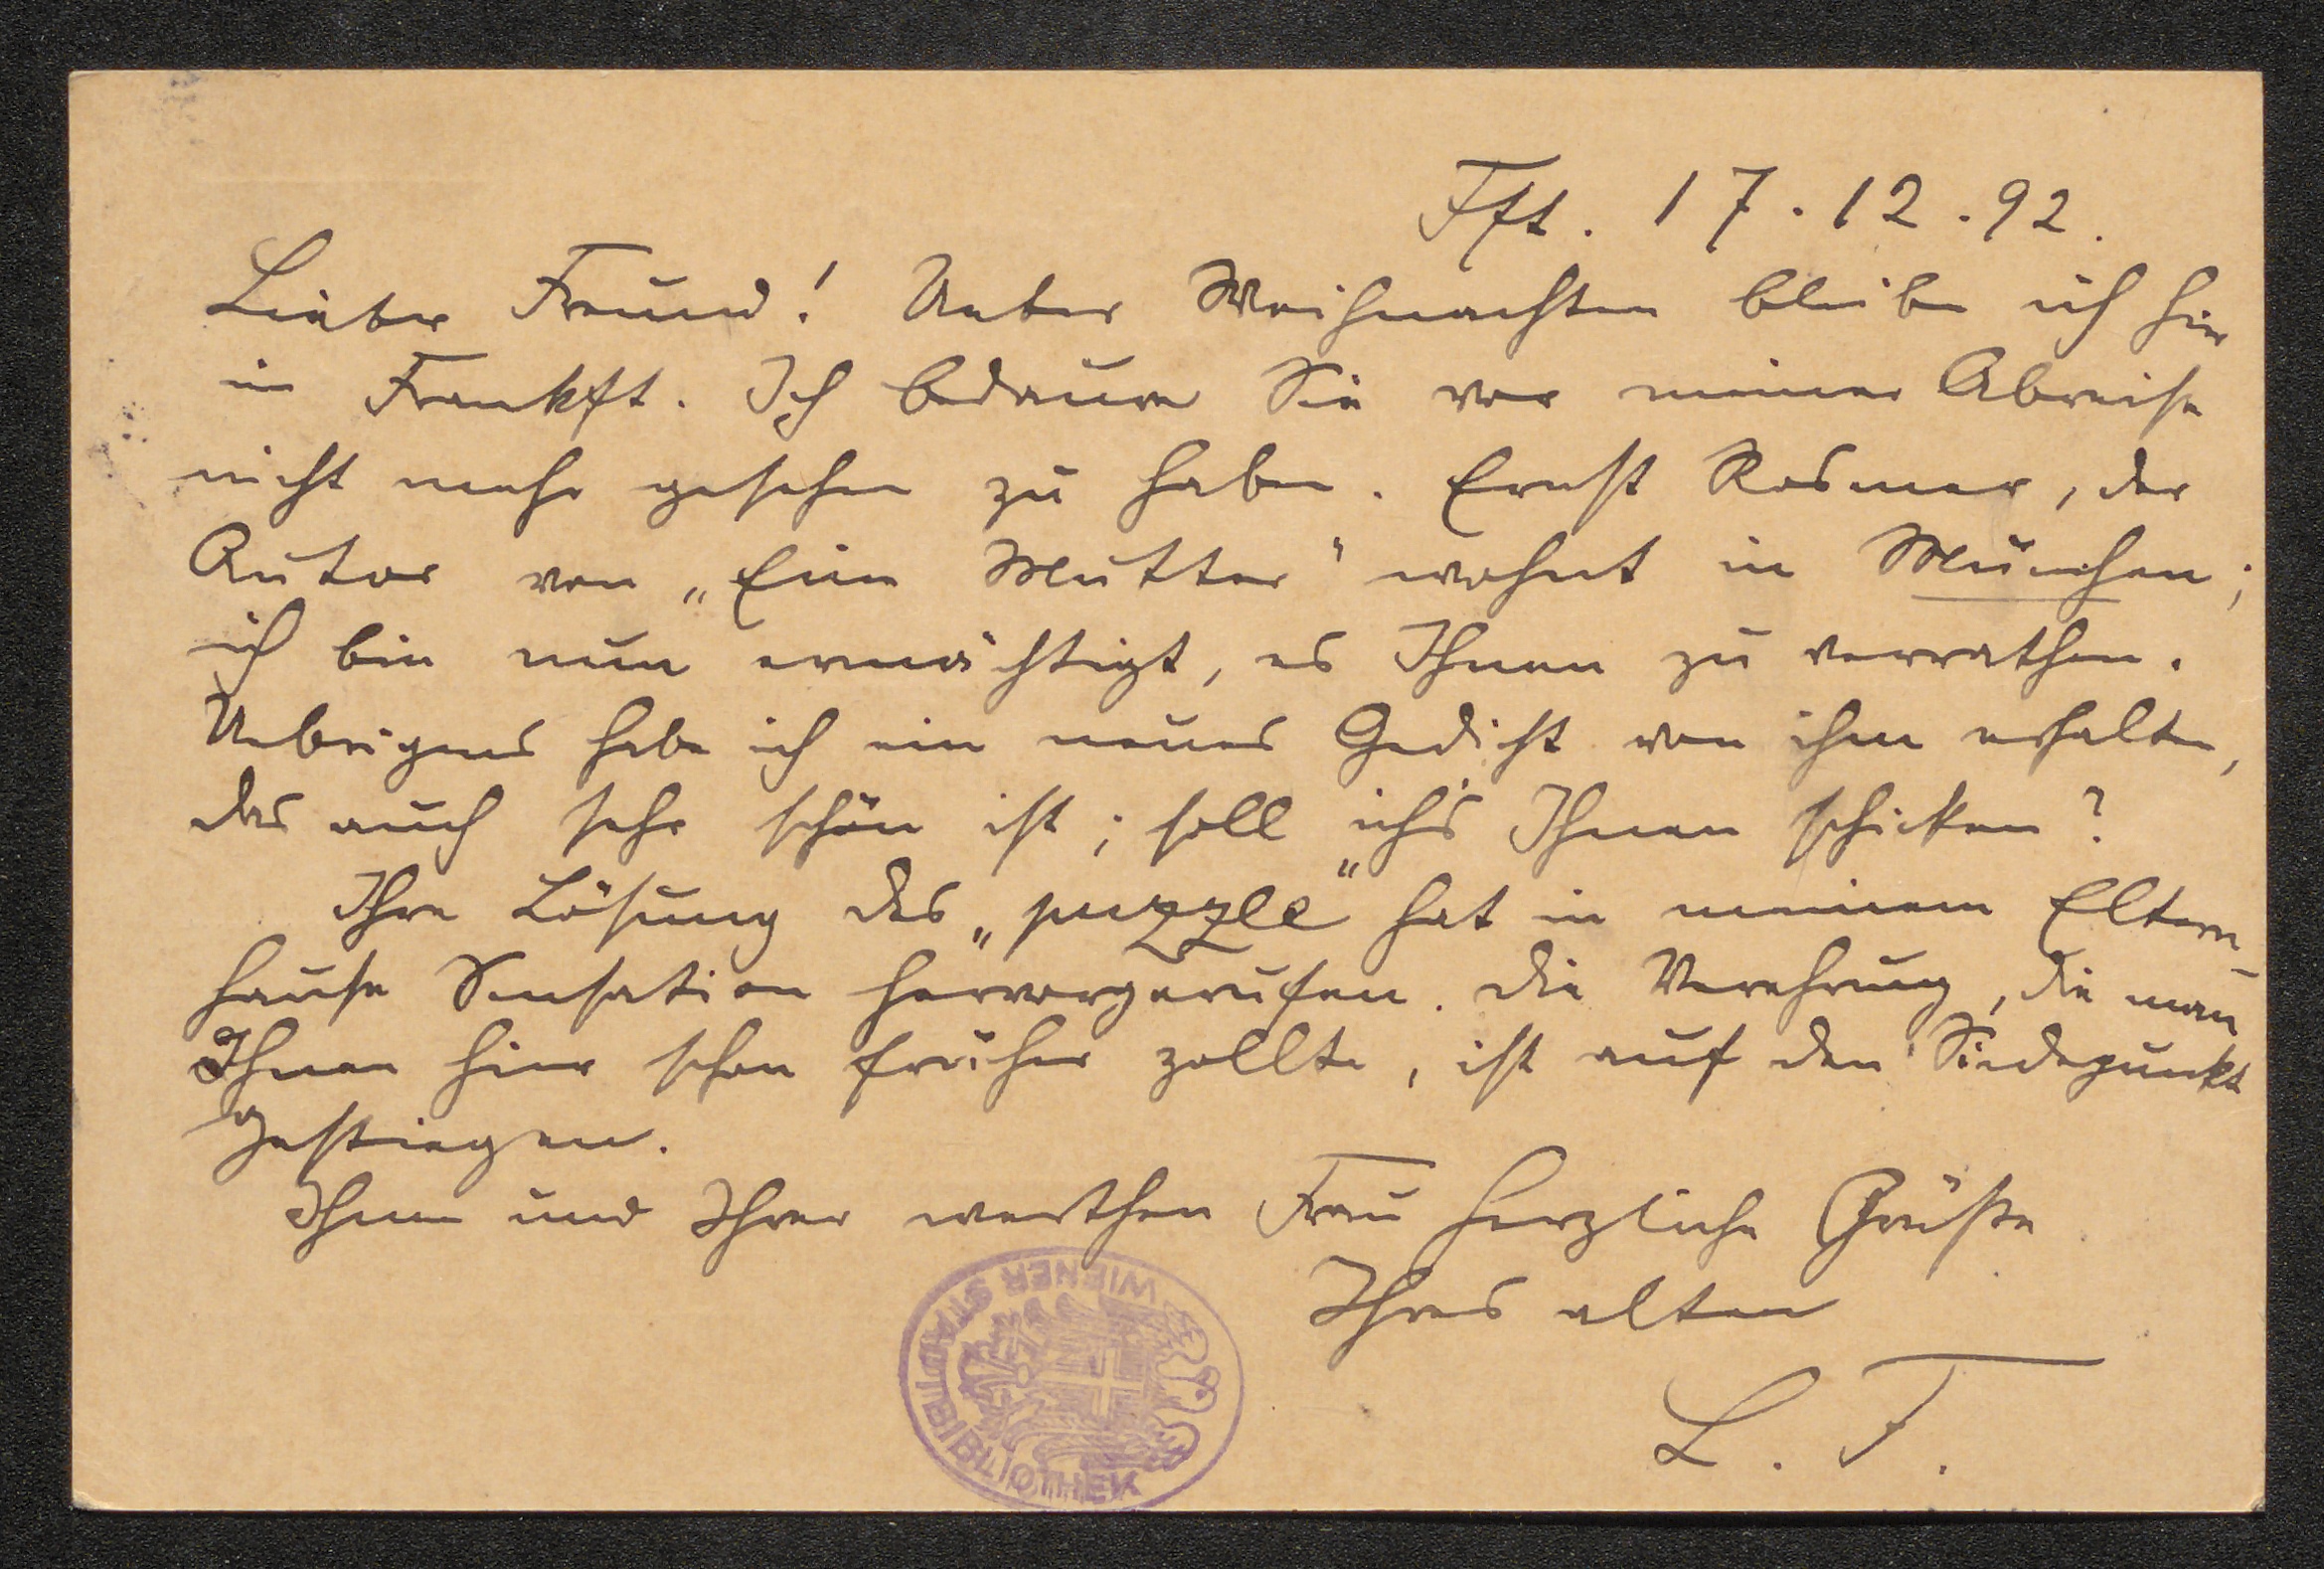 Fft. 17.12.92.
Lieber Freund! Ueber Weihnachten bleibe ich hier
in Frankft. Ich bedaure Sie vor meiner Abreise
nicht mehr gesehen zu haben. Ernst Rosmer, der
Autor von „Eine Mutter“ wohnt in München;
ich bin nun ermächtigt, es Ihnen zu verrathen.
Uebrigens habe ich ein neues Gedicht von ihm erhalten,
das auch sehr schön ist; soll ich's Ihnen schicken?
Ihre Lösung des „puzzle“ hat in meinem Eltern-
hause Sensation hervorgerufen. Die Verehrung, die man
Ihnen hier schon früher zollte, ist auf den Siedepunkt
gestiegen.
Ihnen und Ihrer werthen Frau herzliche Grüße
Ihres alten
L. F.
WIENER STADTBIBLIOTHEK